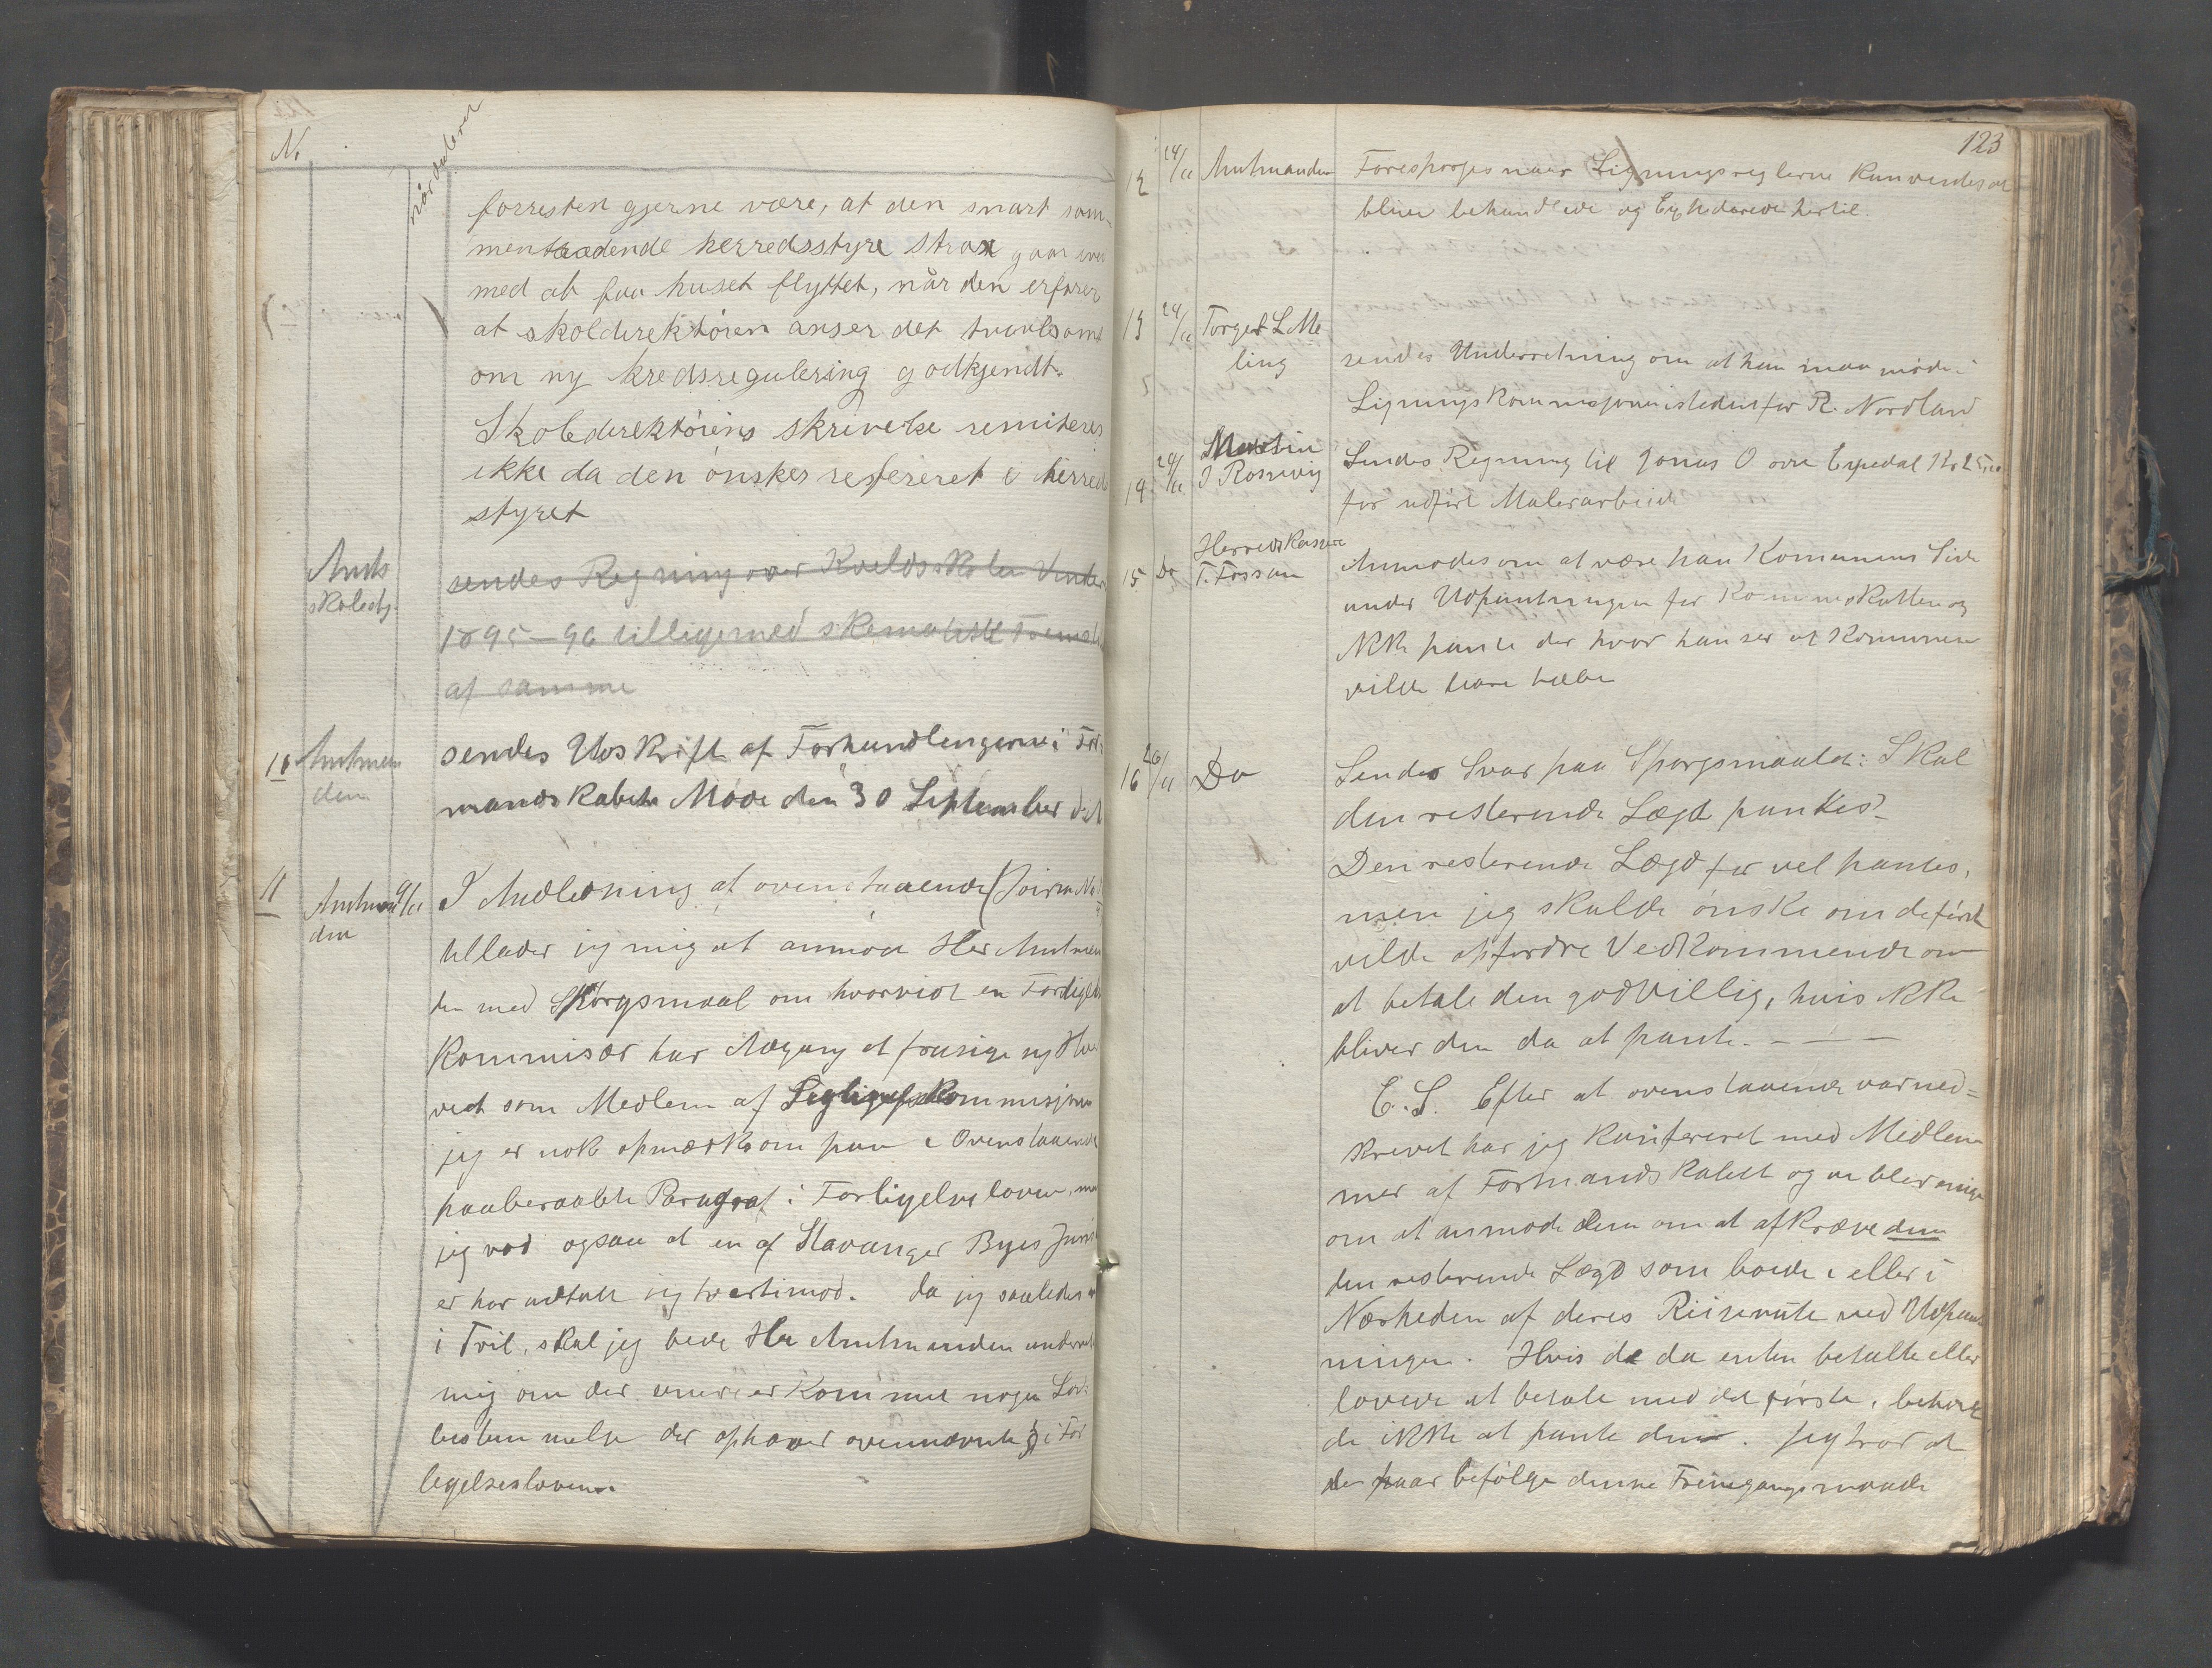 No
når dateret
forresten gjerne være, at den snart sam-
mentrædende herredsstyre strax gaar iver
med at faa huset flyttet, når den erfarer
at skoledirektören anser det tvivlsomt
om ny kredsregulering godkjendt.
Skoledirektörens skrivelse remiteres
ikke da den ønskes refereret i herreds
styret
Amts
skoledr.
sendes Regning over Kveldsskolen Vinter
1895-96 tilligemed skematisk
af samme
10
Amtman
den
sendes Udskrift af Forhandlingerne i For
mandskabets Møde den 30 September d.A
11
Amtman
den
9/11
I Anledning af ovenstaaende
tillader jeg mig at anmode Her Amtman
den med Spørgsmaal om hvorvidt en Forligels
Kommisær har Adgang at frasige sig Hver
vet som Medlem af Ligningskommisjonen
jeg er nok opmærksom paa i Ovenstaaende
paaberaabte Paragraf i Forligelseloven, men
jeg ved ogsaa at en af Stavanger Byes Juris
er har udtalt sig tvertimod. Da jeg saaledes er
i Tvil, skal jeg bede Her Amtmanden underrette
mig om der senere er kommet nogen Lov
bestemmelse der ophæver ovennævnte § i For
legelsesloven.
123
12
24/11
Amtmanden
Forespørges naar Ligningsreglerne kan ventes at
blive behandlede og Expederede hertil.
13
24/11
Torger L Me
ling
sendes Underretning om at han maa møde i
Ligningskommisjonen istedenfor R. Nordland
14
24/11
Martin
J Rosnvig
Sendes Regning til Jonas O øvre Espedal Kr 25,00
for udført Malerarbeide
15
Do
Herredskasserer
T. Fossan
Anmodes om at være paa Komunens Side
under Udpantningen for Komuneskatten og
ikke pante der hvor han ser at Komunen
vilde have tabe
16
26/11
Do
Sendes Svar paa Spørgsmaalet: Skal
den resterende Lægd pantes?
Den resterende Lægd før vel pantes,
men jeg skulde ønske om de først
vilde opfordre Vedkommende om
at betale den godvillig, hvis ikke
bliver den da at pante. - - -
E.S. Efter at ovenstaaende var ned=
skrevet har jeg konfereret med Medlem
mer af Formandskabet og vi blev enige
om at anmode Dem om at afkræve dem
den resterende Lægd som boede i eller i
Nærheden af deres Reiserute ved Udpant
ningen. Hvis de da enten betalte eller
lovede at betale med det første, behøver
de ikke at pante dem. Jeg tror at
de faar befølge denne Fremgangsmaade